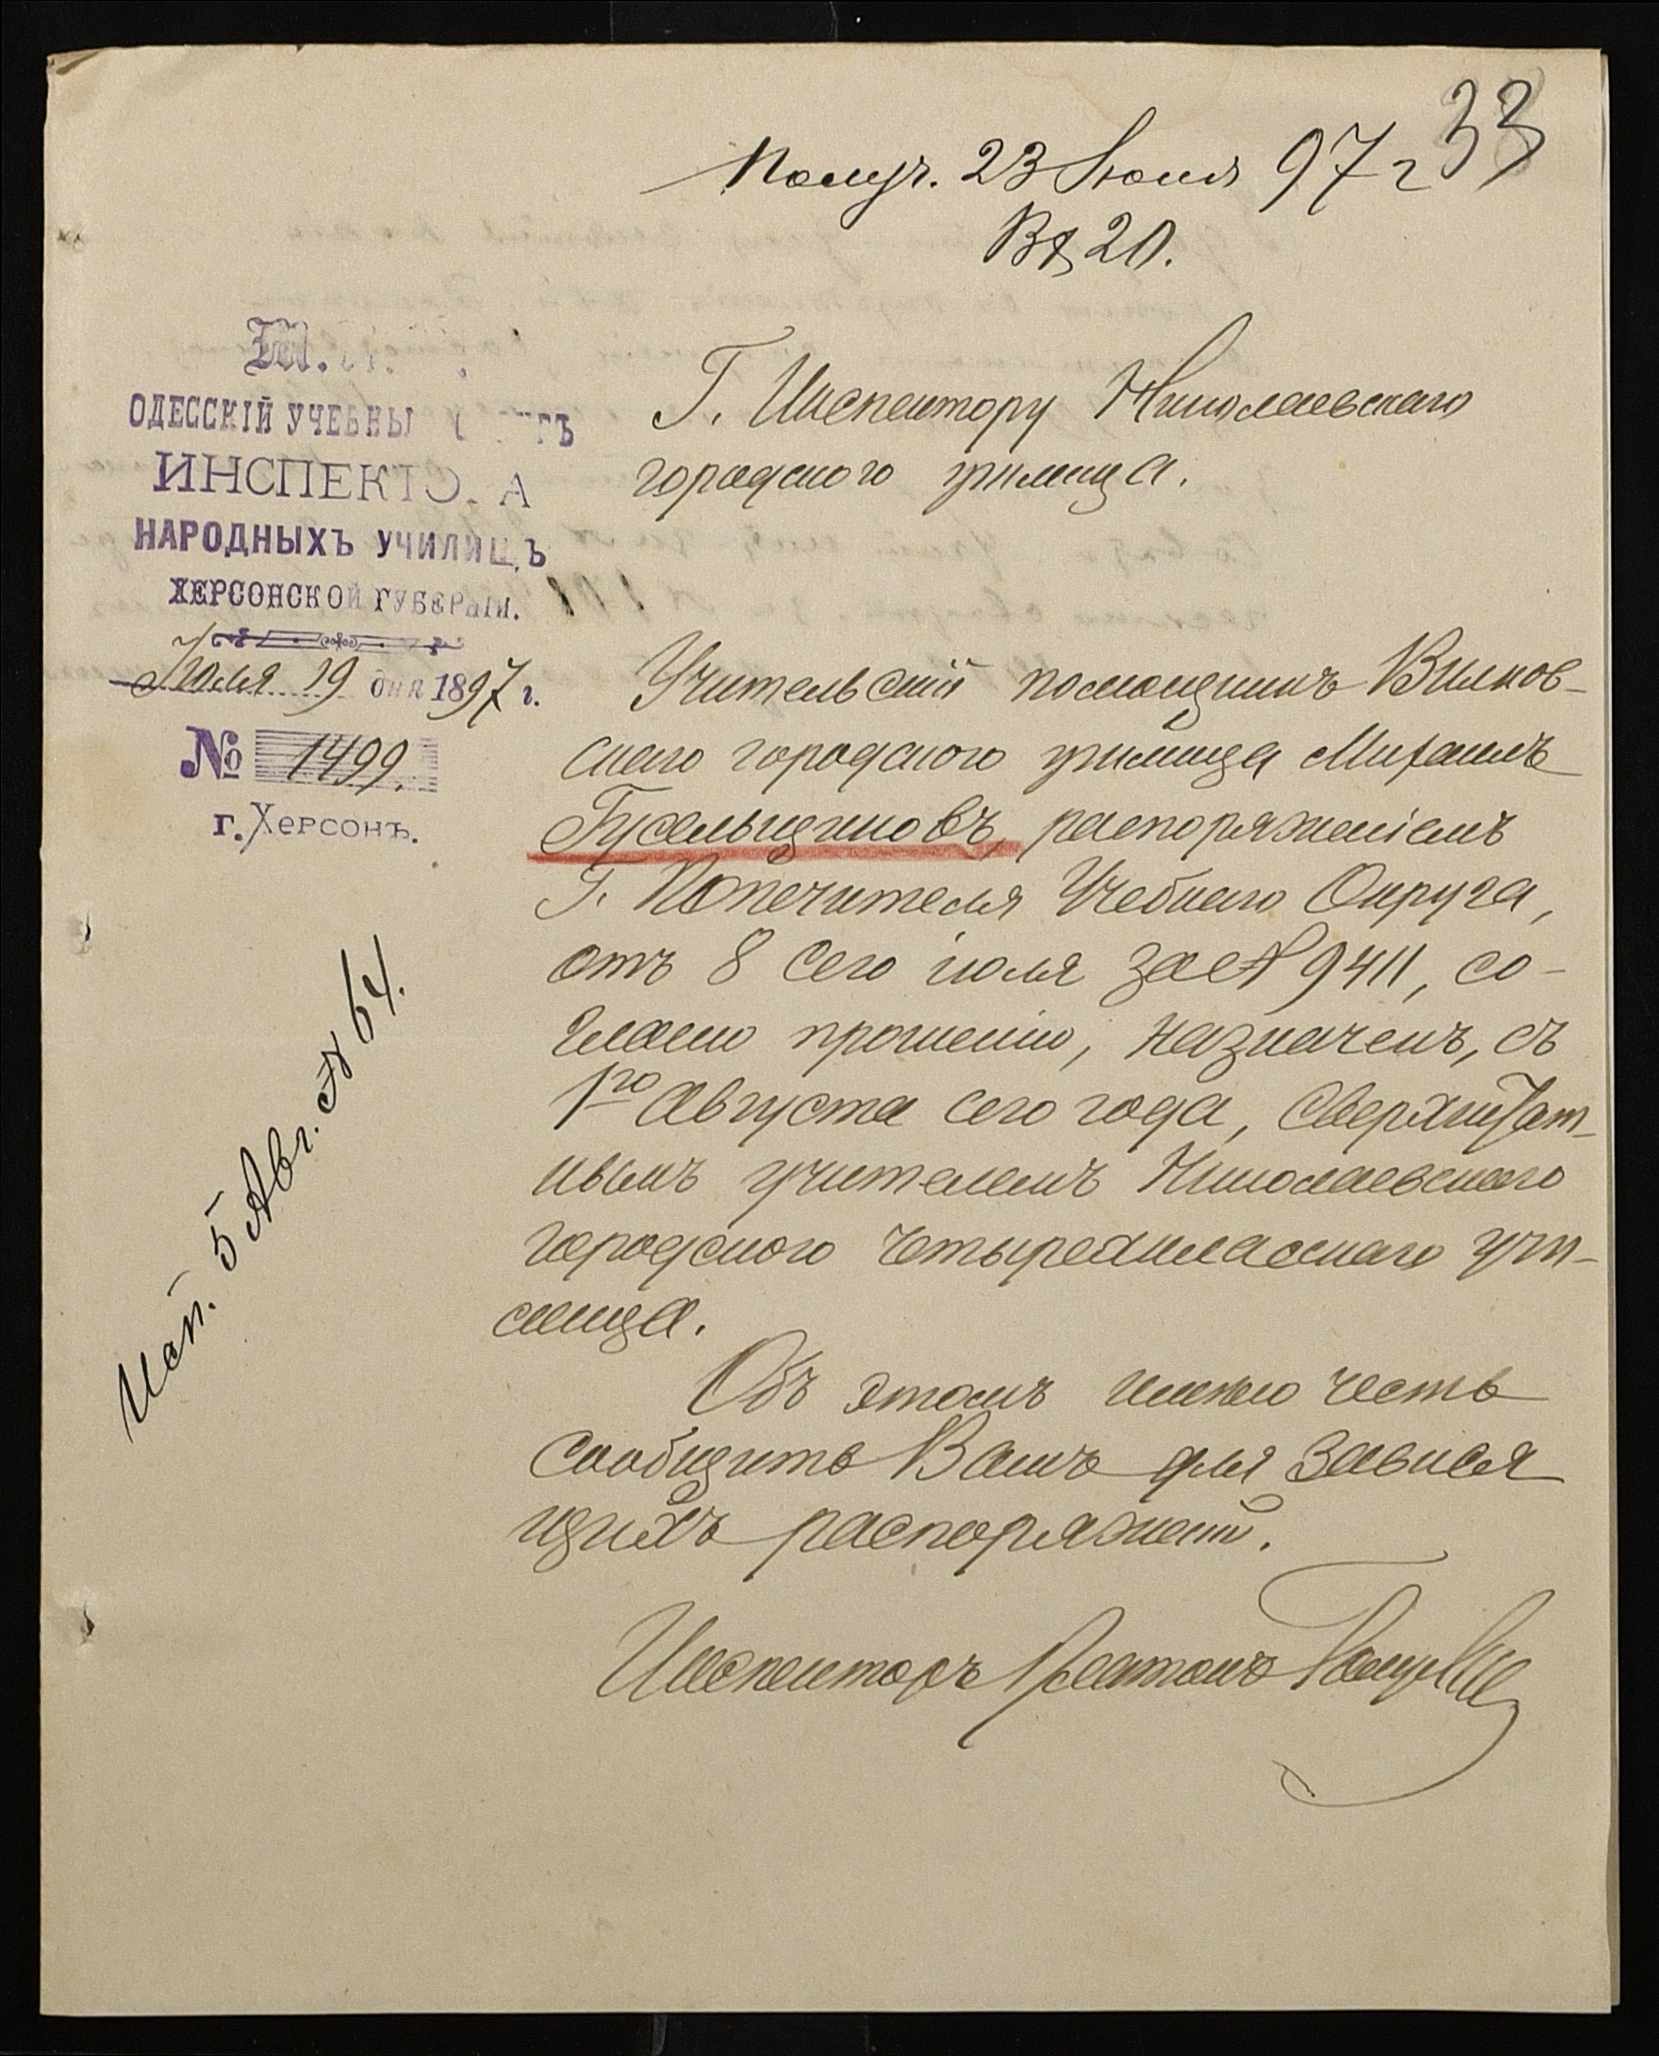 33
Получ. 23 Июля 97 г
Вх 20.
М.
ОДЕССКІЙ УЧЕБНЫ
ИНСПЕКТО А
НАРОДНЫХЪ УЧИЛИЩЪ
ХЕРСОНСКОЙ ГУБЕРНІИ.
Июля 19 дня 1897 г.
№ 1499.
г. Херсонъ.
Исп. 5 Авг. № 64.
Г. Инспектору Николаевскаго
городского училища.
Учительскій помощникъ Вилков-
скаго городского училища Михаилъ
Гусельщиковъ, распоряженіемъ
Г. Попечителя Учебнаго Округа,
отъ 8 сего іюля за № 9411, со-
гласно прошенію, назначенъ, съ
1го Августа сего года, сверхштат-
нымъ учителемъ Николаевскаго
городского четырехкласснаго учи-
лища.
Объ этомъ имѣю честь
сообщить Вамъ для зависѧ
щихъ распоряженій.
Инспекторъ